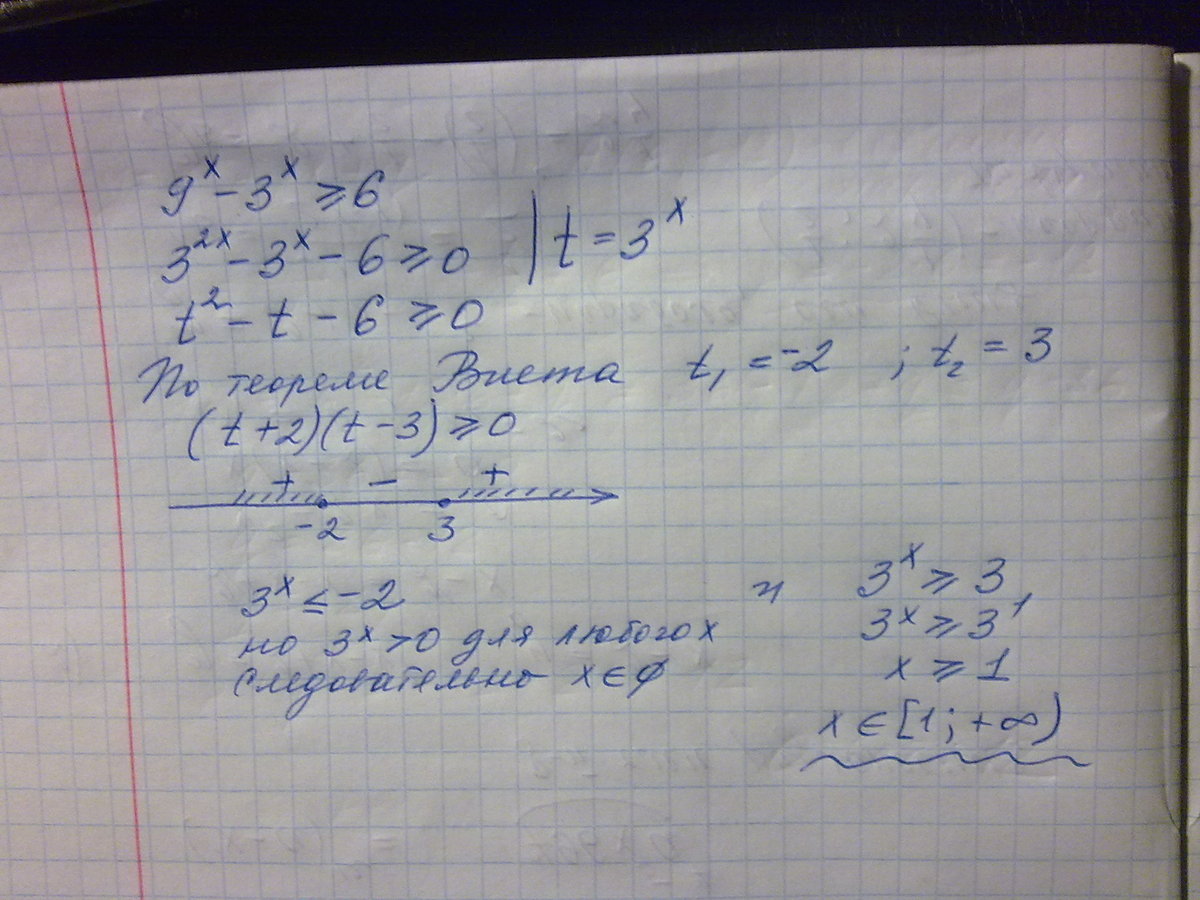 9^x - 3^x ≥ 6
3^{2x} - 3^x - 6 ≥ 0 | t = 3^x
t^2 - t - 6 ≥ 0
По теореме Виета t_1 = -2 ; t_2 = 3
(t + 2)(t - 3) ≥ 0
+ - +
-2 3
3^x ≤ -2 и 3^x ≥ 3
но 3^x > 0 для любого x 3^x ≥ 3^1
следовательно x ∈ ∅ x ≥ 1
x ∈ [1; +∞)